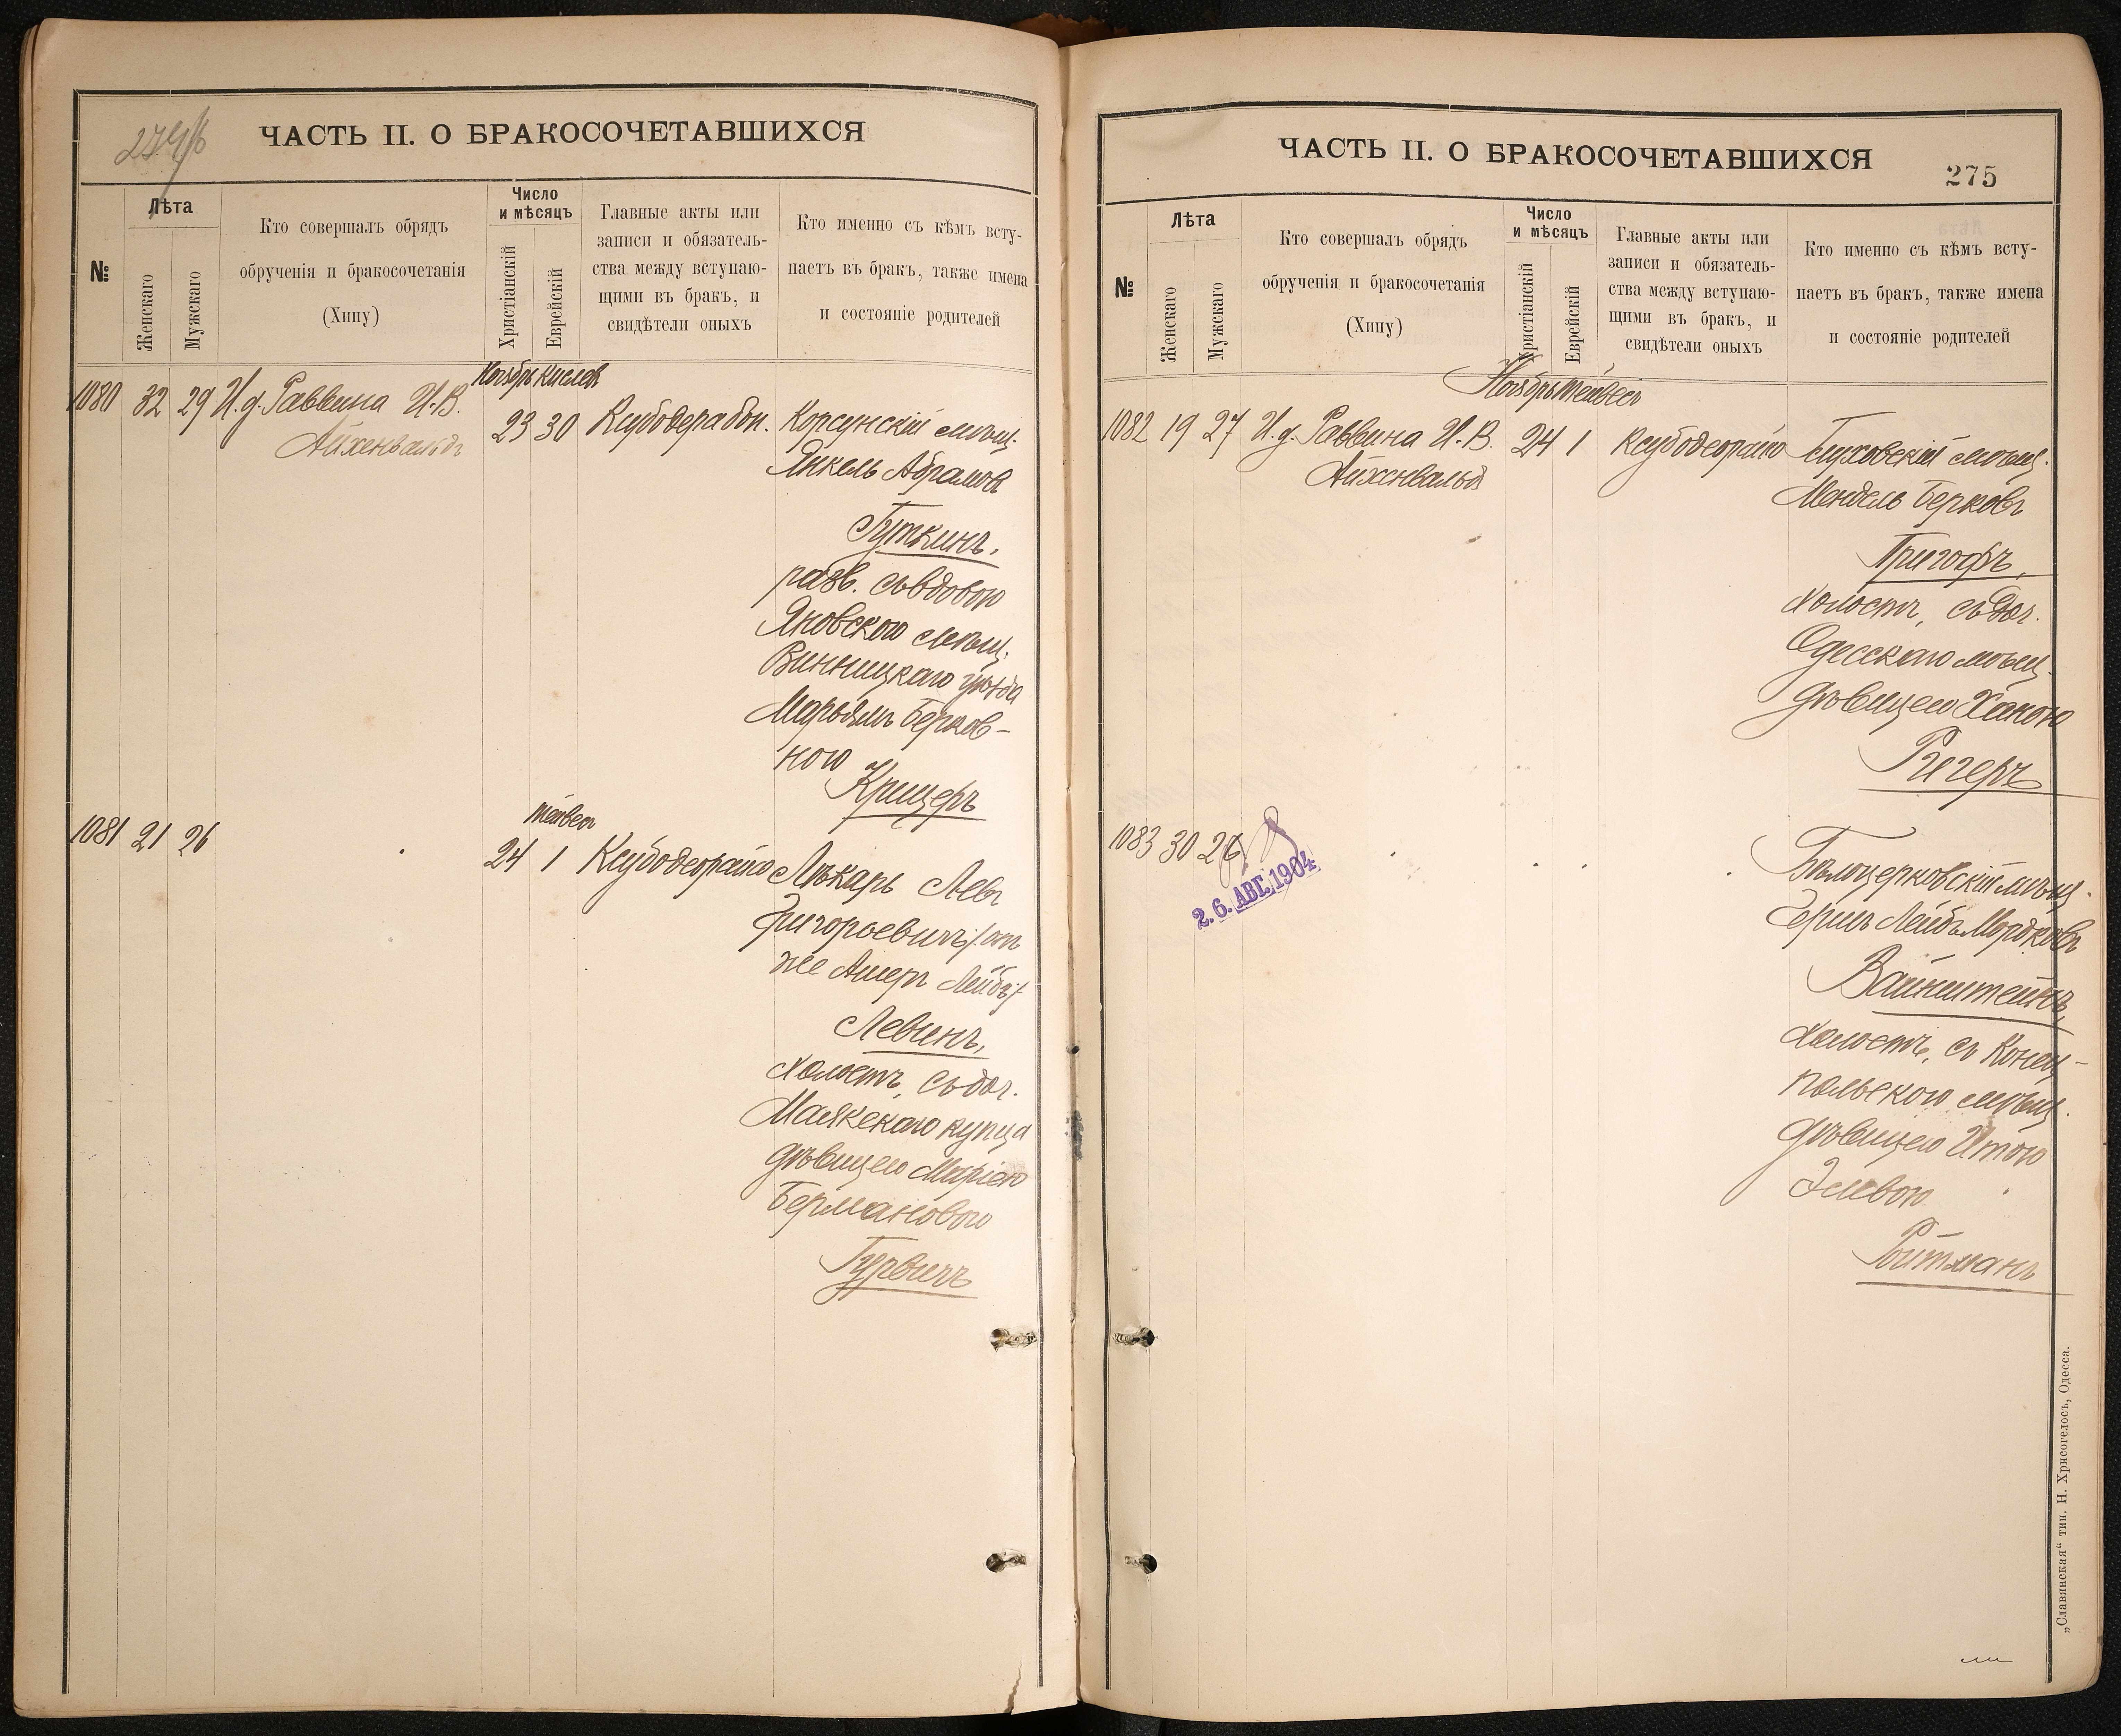 ЧАСТЬ II. О БРАКОСОЧЕТАВШИХСЯ
№
Лѣта
Женскаго
Мужскаго
Кто совершалъ обрядъ
обрученія и бракосочетанія
(Хипу)
Число
и мѣсяцъ
Христіанскій
Еврейскій
Главные акты или
записи и обязатель-
ства между вступаю-
щими въ бракъ, и
свидѣтели оныхъ
Кто именно съ кѣмъ всту-
паетъ въ бракъ, также имена
и состояніе родителей
Ноябрь Кислев
1080 32 29 И.д. Раввина И.В.
Айхенвальдъ
23 30
Корсунскій мѣщ.
Янкель Абрамовъ
Гуткинъ,
разв. съ вдовою
Яновского мѣщ.
Винницкаго уѣзда
Марьямъ Берков-
ною
Крицеръ
Тейвес
1081 21 26
24 1 Ксубодеорайсо Лѣкарь Левъ
Григорьевичъ (он
же Ашеръ Лейбъ)
Левинъ,
холостъ, съ доч.
Маякскаго купца
дѣвицею Маріею
Бермановою
Гурвичъ
ЧАСТЬ II. О БРАКОСОЧЕТАВШИХСЯ
275
№
Лѣта
Женскаго
Мужскаго
Кто совершалъ обрядъ
обрученія и бракосочетанія
(Хипу)
Число
и мѣсяцъ
Христіанскій
Еврейскій
Главные акты или
записи и обязатель-
ства между вступаю-
щими въ бракъ, и
свидѣтели оныхъ
Кто именно съ кѣмъ всту-
паетъ въ бракъ, также имена
и состояніе родителей
Ноябрь Тейвес
1082 19 27 И.д. Раввина И.В. 24 1 Ксубодеорайсо
Айхенвальдъ
мѣщ.
Мендель Берковъ
Пригофъ,
холостъ, съ доч.
Одесскаго мѣщ.
дѣвицею Ханою
Ригеръ
1083 30 26
2. 6. АВГ. 1904
Бѣлоцерковскій мѣщ.
Гершъ Лейбъ Мордковъ
Вайнштейнъ,
холостъ, съ Конец-
польского мѣщ.
дѣвицею Итою
Элевою
Ройтманъ
„Славянская“ тип. Н. Хрисогелосъ, Одесса.